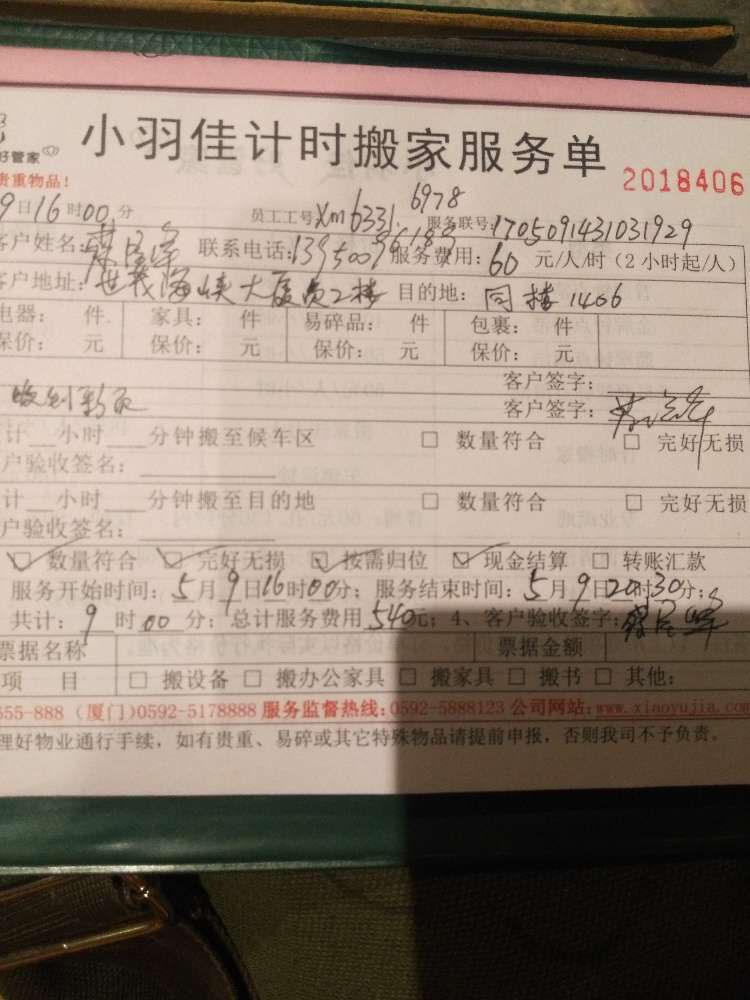 小羽佳计时搬家服务单
好管家
贵重物品!
2018406
9日16时00分 员工工号xm6331、6978 服务联号:1705091431031929
客户姓名: 联系电话: 服务费用:60元/人/时(2小时起/人)
客户地址:世茂海峡大厦 2楼 目的地:同楼1406
电器: 件 家具: 件 易碎品: 件 包裹: 件
保价: 元 保价: 元 保价: 元 保价: 元
客户签字:
收到 客户签字:
计 小时 分钟搬至候车区 □ 数量符合 □ 完好无损
户验收签名:
计 小时 分钟搬至目的地 □ 数量符合 □ 完好无损
户验收签名:
☑ 数量符合 ☑ 完好无损 ☑ 按需归位 ☑ 现金结算 □ 转账汇款
服务开始时间:5月9日16时00分; 服务结束时间:5月9日20时30分;
共计:9时00分; 总计服务费用540元; 4、客户验收签字:
票据名称 票据金额
项 目 □ 搬设备 □ 搬办公家具 □ 搬家具 □ 搬书 □ 其他:
855-888 (厦门)0592-5178888 服务监督热线:0592-5888123 公司网站:www.xiaoyujia.com
理好物业通行手续,如有贵重、易碎或其它特殊物品请提前申报,否则我司不予负责。